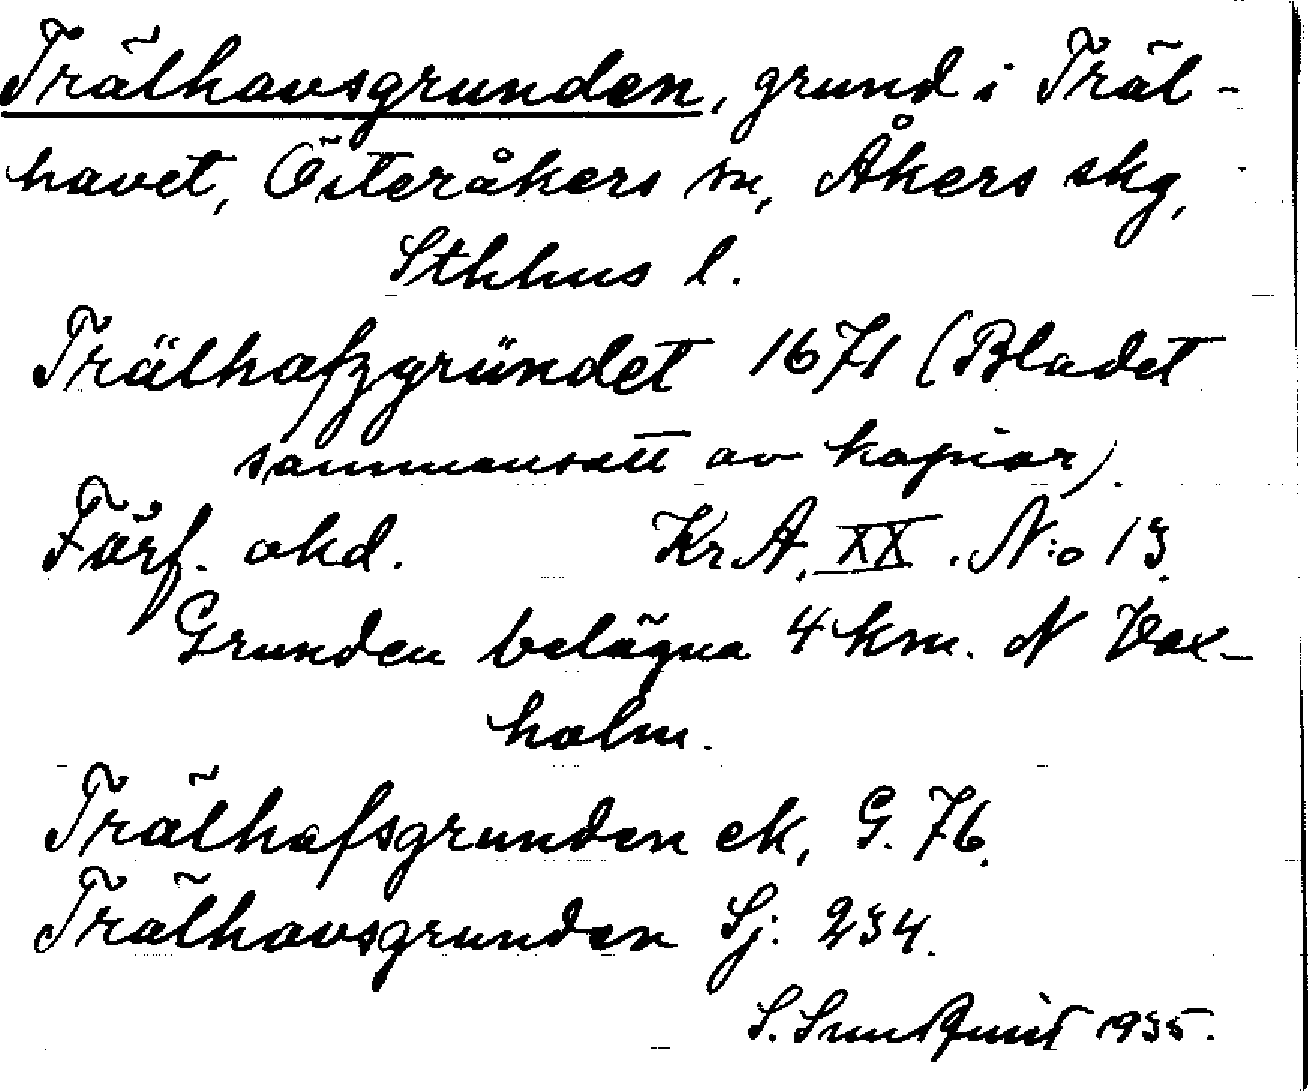 Trälhavsgrunden, grund i Träl-
havet, Österåkers sn, Åkers skg,
Sthlms l.
Trälhafzgründet 1671 (Bladet
sammansatt av kopior).
Förf. okd. KrA. XX. N:o 13.
Grunden belägna 4 km. N Vax-
holm.
Trälhafsgrunden ek, G. 76.
Trälhavsgrunden Sj. 234.
S. Sundquist 1935.